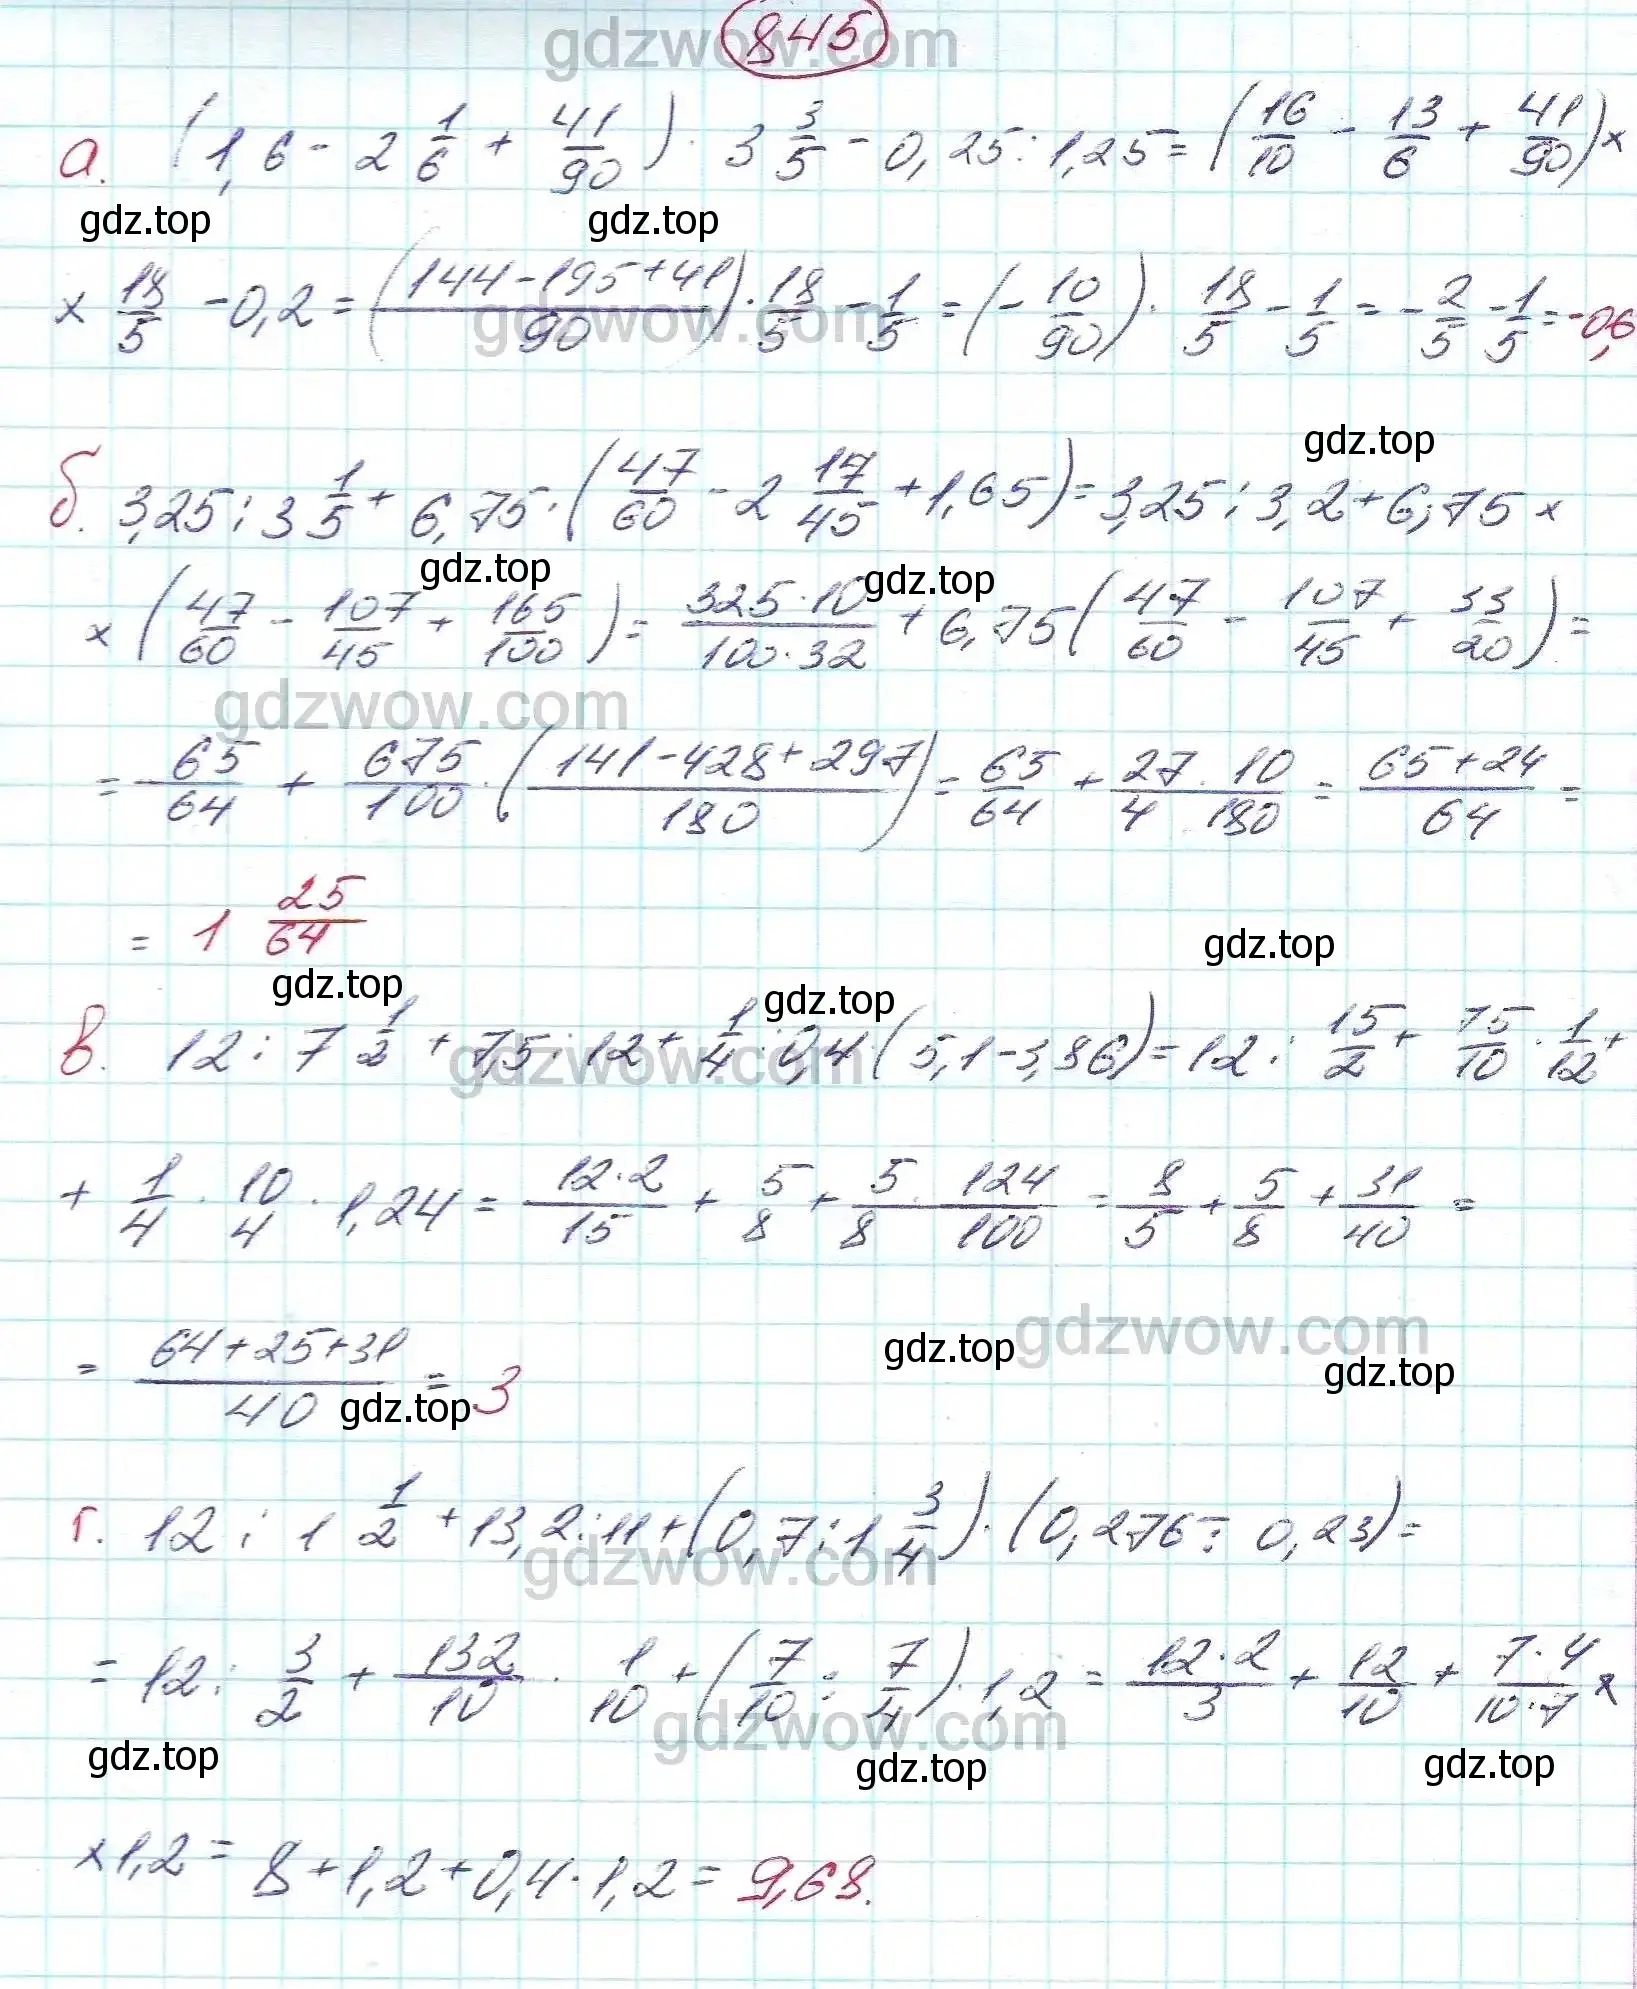 845
gdzwow.com
а. (1,6 - 2 1/6 + 41/90) · 3 3/5 - 0,25 : 1,25 = (16/10 - 13/6 + 41/90) ×
gdz.top gdz.top
× 18/5 - 0,2 = ((144 - 195 + 41)/90) · 18/5 - 1/5 = (- 10/90) · 18/5 - 1/5 = - 2/5 - 1/5 = -0,6
gdzwow.com
gdz.top
б. 3,25 : 3 1/5 + 6,75 · (47/60 - 2 17/45 + 1,65) = 3,25 : 3,2 + 6,75 ×
gdz.top gdz.top
× (47/60 - 107/45 + 165/100) = (325 · 10)/(100 · 32) + 6,75 (47/60 - 107/45 + 33/20) =
gdzwow.com
= 65/64 + 675/100 · ((141 - 428 + 297)/180) = 65/64 + (27 · 10)/(4 180) = (65 + 24)/64 =
= 1 25/64
gdz.top
gdz.top gdz.top
в. 12 : 7 1/2 + 7,5 : 12 + 1/4 : 0,4 · (5,1 - 3,86) = 12 : 15/2 + 75/10 · 1/12 +
gdzwow.com
+ 1/4 · 10/4 · 1,24 = (12 · 2)/15 + 5/8 + 5/8 · 124/100 = 8/5 + 5/8 + 31/40 =
gdzwow.com
= (64 + 25 + 31)/40 = 3
gdz.top gdz.top gdz.top
г. 12 : 1 1/2 + 13,2 : 11 + (0,7 : 1 3/4) · (0,276 : 0,23) =
gdzwow.com
= 12 : 3/2 + 132/10 · 1/10 + (7/10 : 7/4) · 1,2 = (12 · 2)/3 + 12/10 + (7 · 4)/(10 · 7) ×
gdzwow.com
gdz.top gdz.top gdz.top
× 1,2 = 8 + 1,2 + 0,4 · 1,2 = 9,68.